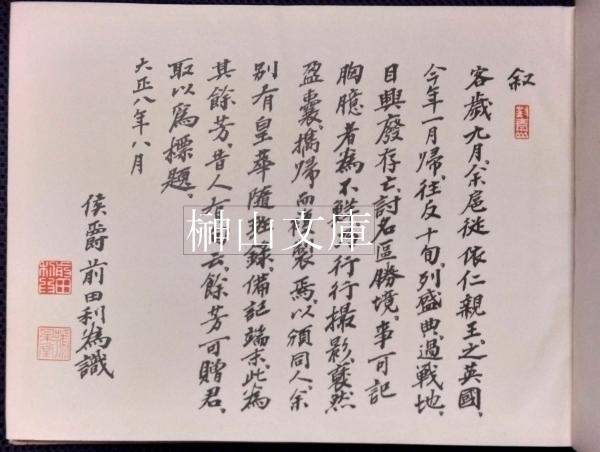 叙
客歳九月、余扈従 依仁親王、之英国、
今年一月帰、往反十旬、列盛典、過戦地、
目興廃存亡、討名区勝境、事可記
胸臆者為不鮮、行行撮影、裒然
盈嚢、携帰而複製焉、以頒同人、余
別有皇華随録、備記端末、此為
其餘芳、昔人有句云、餘芳可贈君、
取以為標題、
大正八年八月
侯爵 前田利為識
榊山文庫